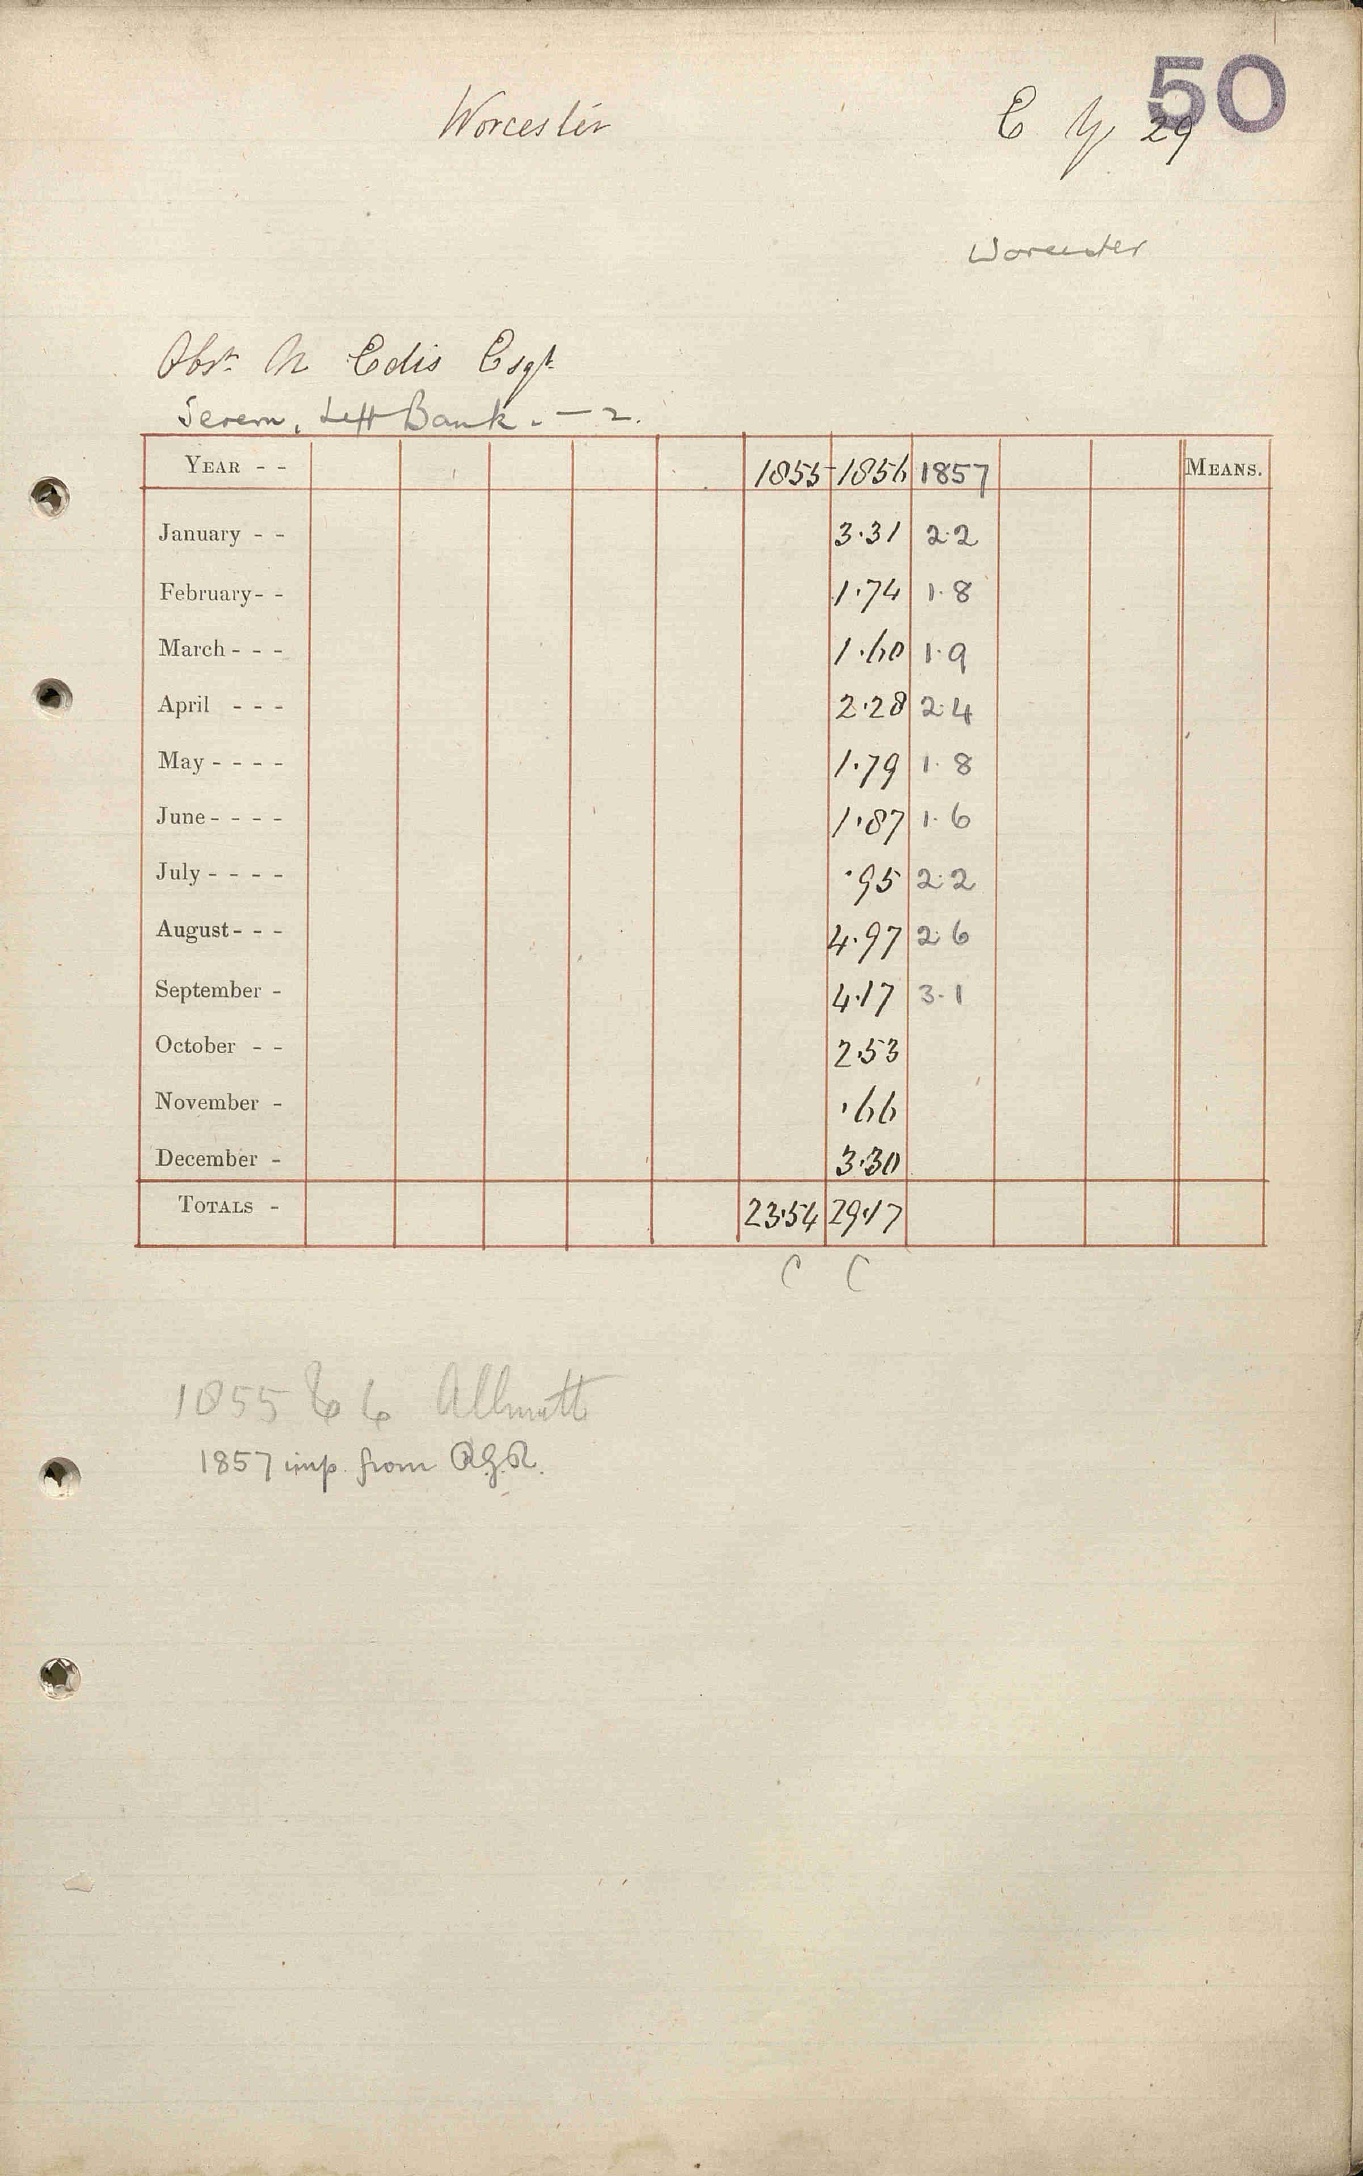 50
Worcester C 29
Worcester
Obsr. N Edis Esqr.
Severn, Left Bank. — 2.
YEAR - - 1855 1856 1857 MEANS.
January - - 3.31 2.2
February - - 1.74 1.8
March - - - 1.60 1.9
April - - - 2.28 2.4
May - - - - 1.79 1.8
June - - - - 1.87 1.6
July - - - - .95 2.2
August - - - 4.97 2.6
September - 4.17 3.1
October - - 2.53
November - .66
December - 3.30
TOTALS - 23.54 29.17
C C
1855 & 6 Allnatt
1857 imp. from R.G.R.